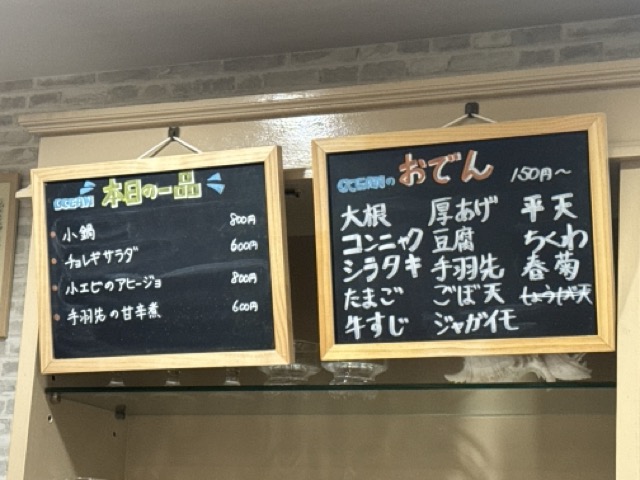 本日の一品
小鍋 800円
チョレギサラダ 600円
小エビのアヒージョ 800円
手羽先の甘辛煮 600円
OCEANの おでん 150円〜
大根 厚あげ 平天
コンニャク 豆腐 ちくわ
シラタキ 手羽先 春菊
たまご ごぼ天 しょうが天
牛すじ ジャガイモ